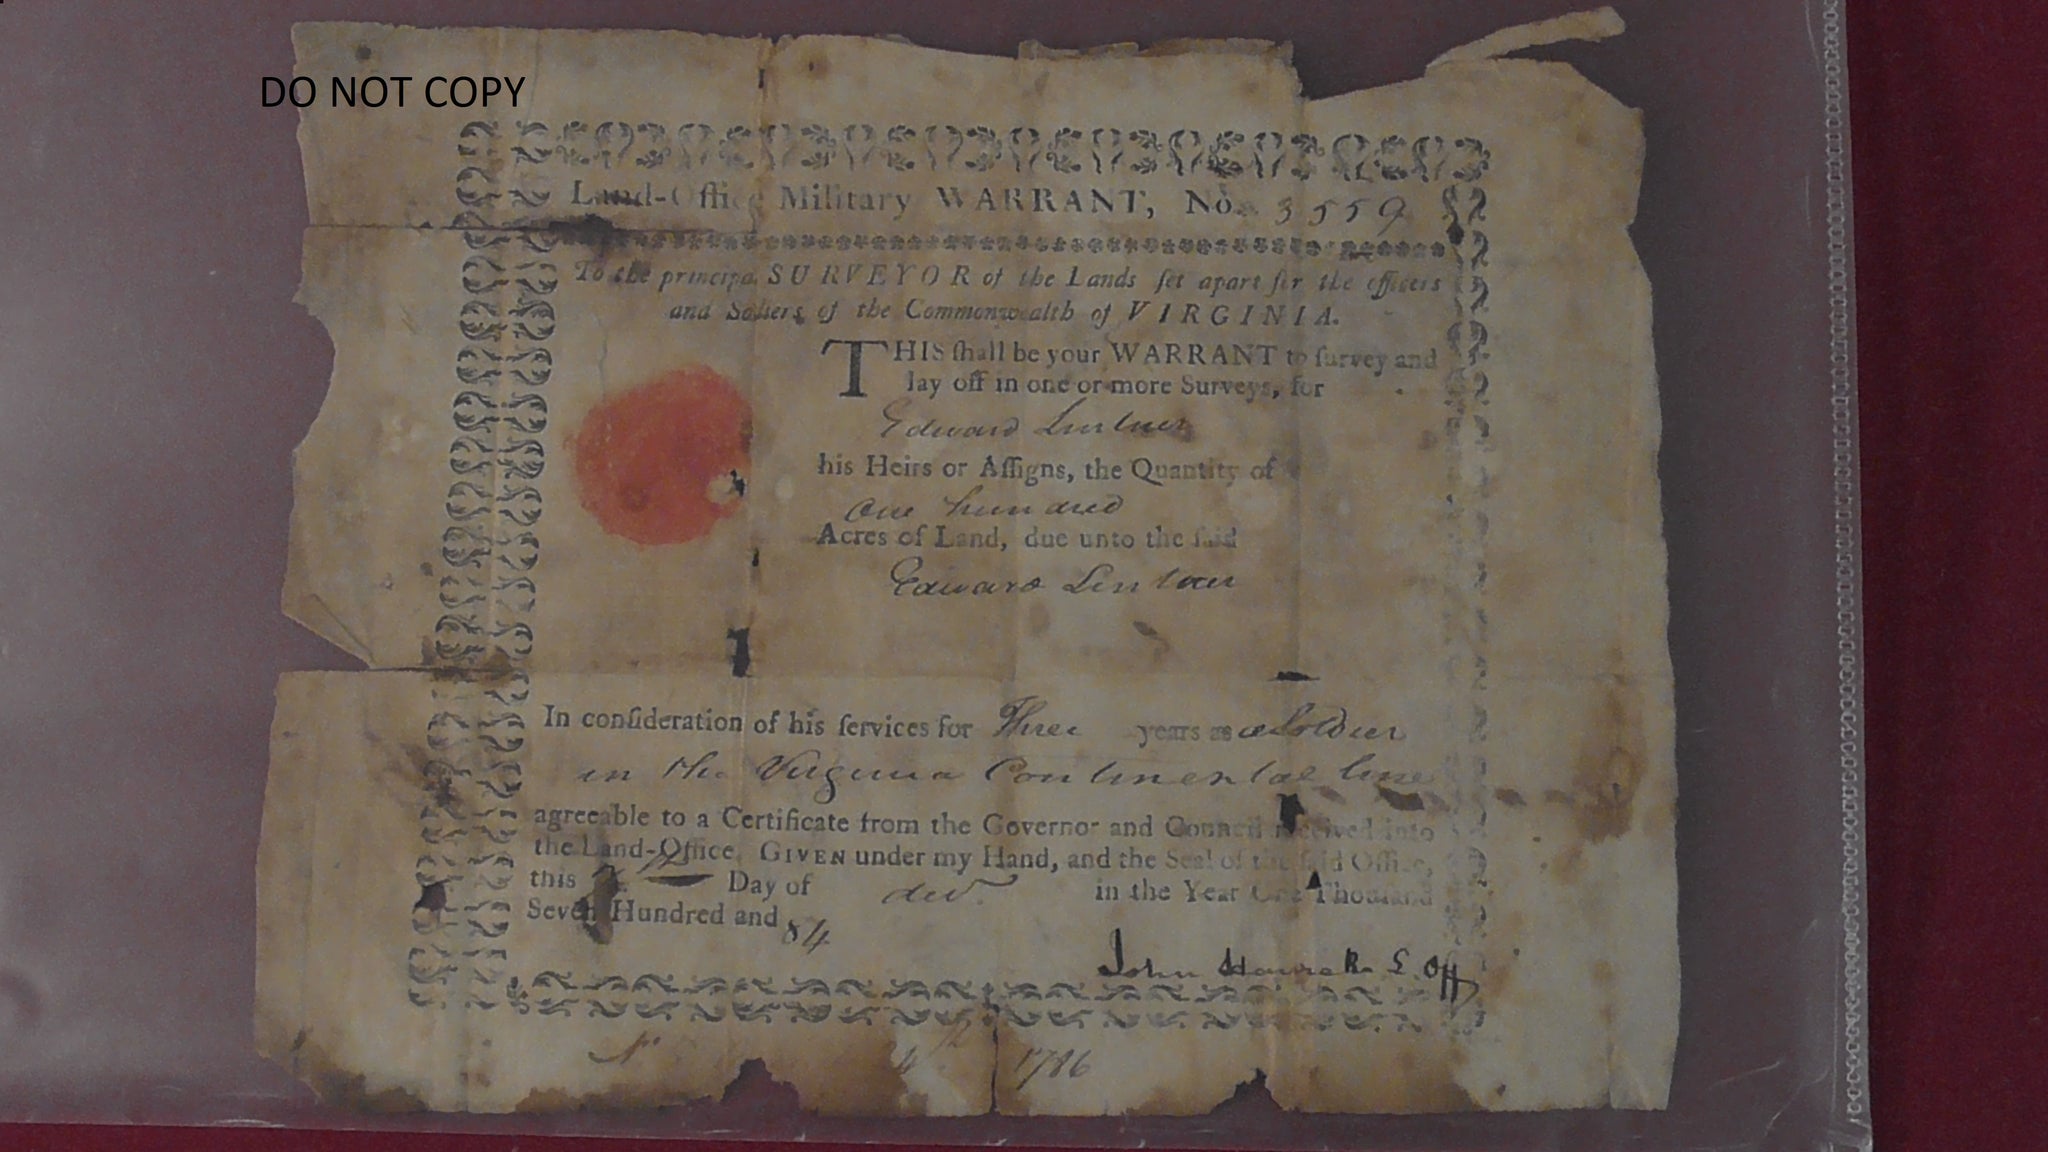 DO NOT COPY
Land-Office Military WARRANT, No. 3559
To the principal SURVEYOR of the Lands ſet apart for the officers
and Soldiers of the Commonwealth of VIRGINIA.
THIS ſhall be your WARRANT to ſurvey and
lay off in one or more Surveys, for
Edward
his Heirs or Aſſigns, the Quantity of
One hundred
Acres of Land, due unto the ſaid
Edward
In conſideration of his ſervices for Three years as a Soldier
in the Virginia Continental line
agreeable to a Certificate from the Governor and Council received into
the Land-Office. GIVEN under my Hand, and the Seal of the ſaid Office,
this Day of in the Year One Thouſand
Seven Hundred and 84
John L. Off
1786